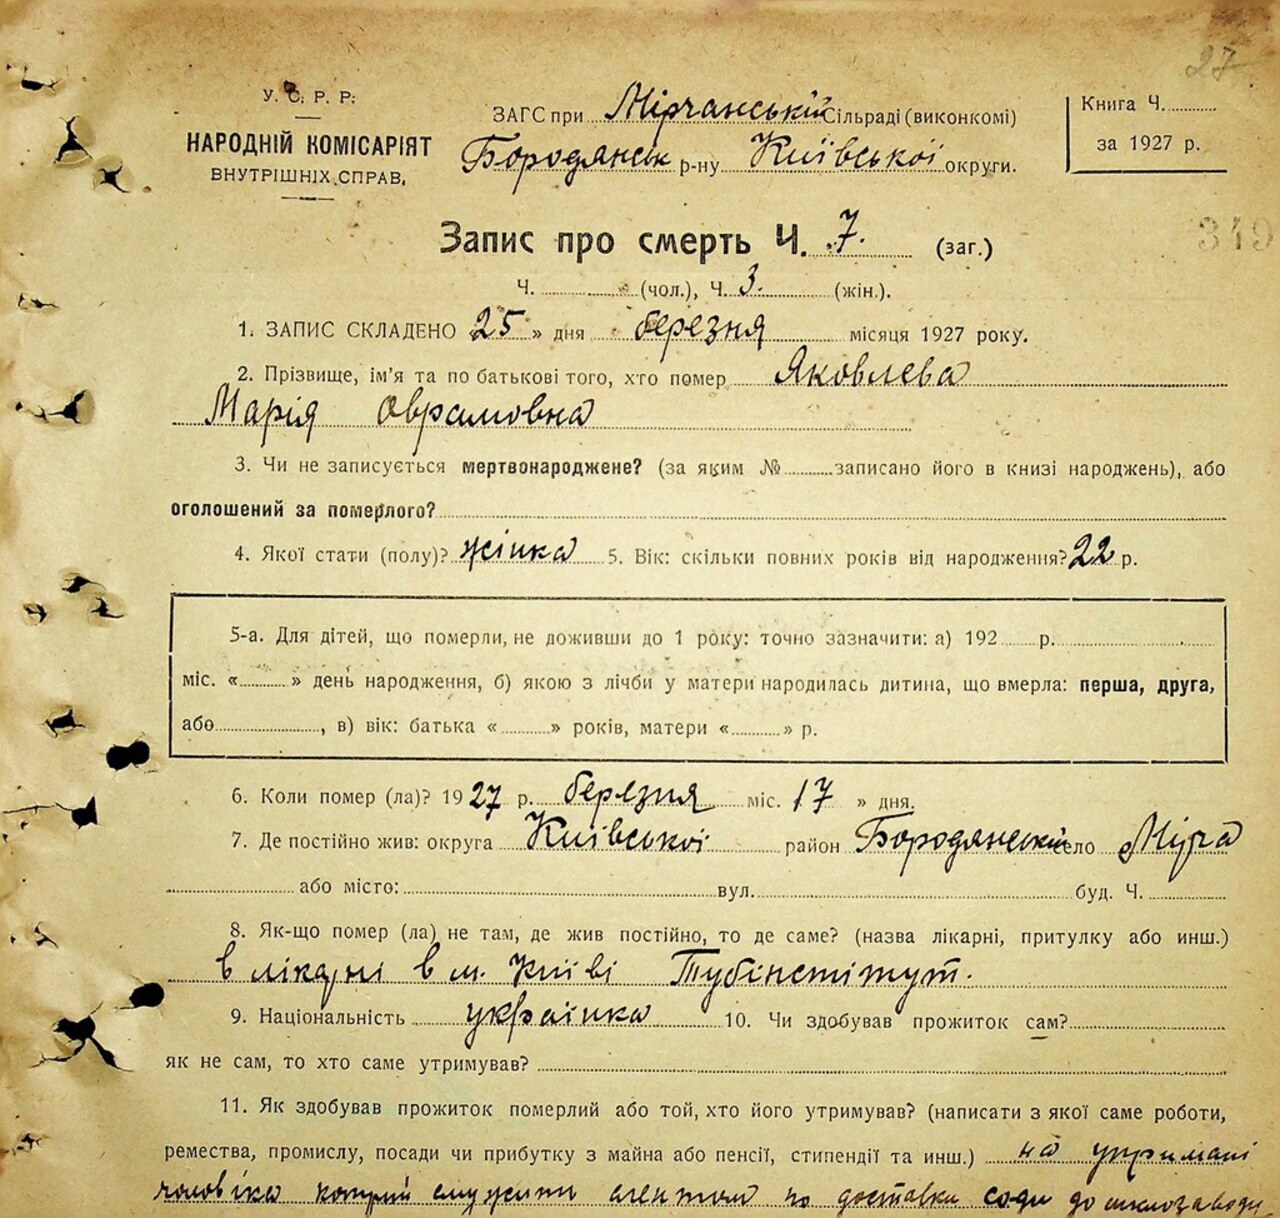 27
У. С. Р. Р.
НАРОДНІЙ КОМІСАРІЯТ
ВНУТРІШНІХ СПРАВ.
ЗАГС при Мірчанській Сільраді (виконкомі)
Бородянськ р-ну Київської округи.
Книга Ч.
за 1927 р.
349
Запис про смерть Ч. 7. (заг.)
Ч. (чол.), Ч. 3. (жін.).
1. ЗАПИС СКЛАДЕНО 25 » дня березня місяця 1927 року.
2. Прізвище, ім'я та по батькові того, хто помер Яковлєва
Марія Оврамовна
3. Чи не записується мертвонароджене? (за яким № записано його в книзі народжень), або
оголошений за померлого?
4. Якої стати (полу)? жінка 5. Вік: скільки повних років від народження? 22 р.
5-а. Для дітей, що померли, не доживши до 1 року: точно зазначити: а) 192 р.
міс. « » день народження, б) якою з лічби у матери народилась дитина, що вмерла: перша, друга,
або , в) вік: батька « » років, матери « » р.
6. Коли помер (ла)? 1927 р. березня міс. 17 » дня.
7. Де постійно жив: округа Київської район Бородянський село Міра
або місто: вул. буд. Ч.
8. Як-що помер (ла) не там, де жив постійно, то де саме? (назва лікарні, притулку або инш.)
в лікарні в м. Київі Тубінстітут.
9. Національність українка 10. Чи здобував прожиток сам?
як не сам, то хто саме утримував?
11. Як здобував прожиток померлий або той, хто його утримував? (написати з якої саме роботи,
ремества, промислу, посади чи прибутку з майна або пенсії, стипендії та инш.) на утримані
чоловіка котрий служить агентом по доставки соди до склозаводу